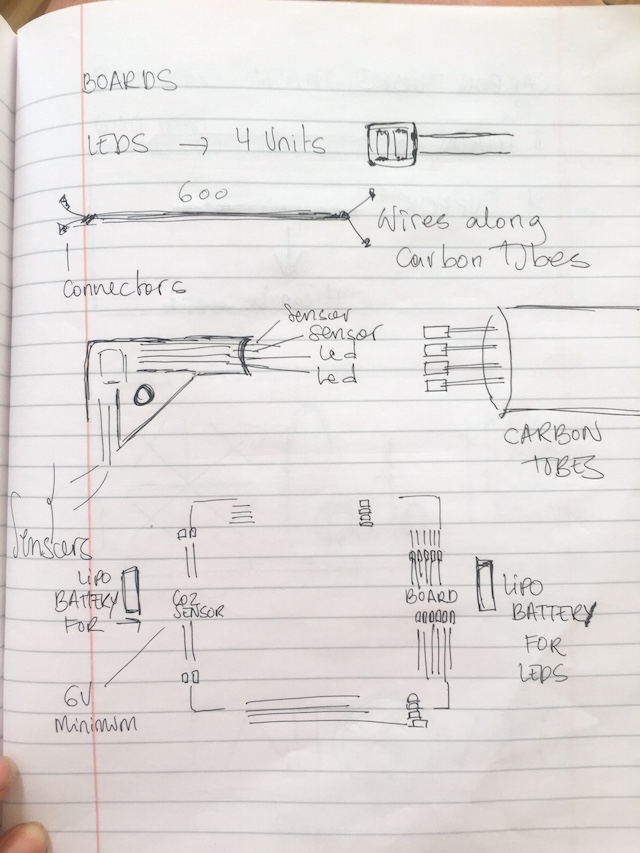 BOARDS
LEDS → 4 Units
600
Wires along
Carbon Tubes
Connectors
Sensor
Sensor
Led
Led
CARBON
TUBES
Sensors
LiPO
BATTERY
FOR →
CO2
SENSOR
BOARD
LiPO
BATTERY
FOR
LEDS
6V
Minimum